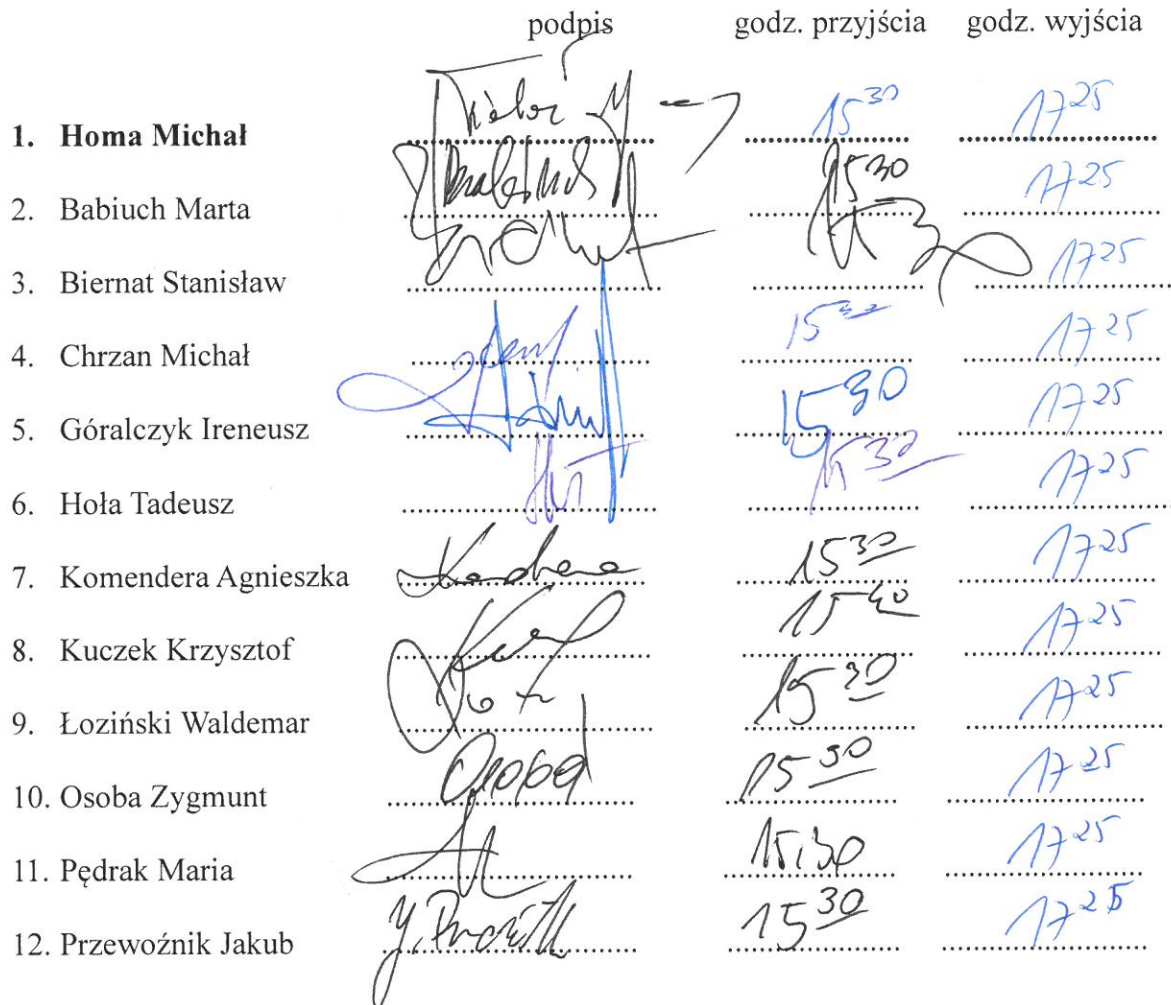 podpis godz. przyjścia godz. wyjścia
1. Homa Michał 15 30 17 25
2. Babiuch Marta 15 30 17 25
3. Biernat Stanisław 17 25
4. Chrzan Michał 15 30 17 25
5. Góralczyk Ireneusz 15 30 17 25
6. Hoła Tadeusz 15 30 17 25
7. Komendera Agnieszka 15 30 17 25
8. Kuczek Krzysztof 17 25
9. Łoziński Waldemar 15 30 17 25
10. Osoba Zygmunt 15 30 17 25
11. Pędrak Maria 15:30 17 25
12. Przewoźnik Jakub 15 30 17 25